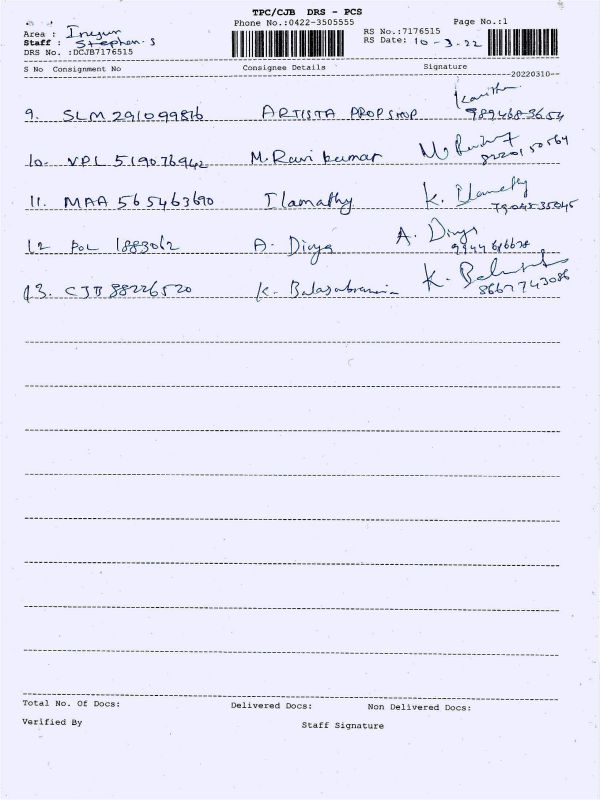 TPC/CJB DRS - PCS
Phone No.:0422-3505555 Page No.:1
Area : Irugur RS No.:7176515
Staff : Stephen.S RS Date: 10-3-22
DRS No. :DCJB7176515
S No Consignment No Consignee Details Signature
20220310
9. SLM 291099816 ARTISTA PROP SHOP Kavitha
9894683654
10. VPL 519076942 M. Ravi kumar
8220150564
11. MAA 565463690 Ilamathy K. Ilamathy
12 POL 1883062 A. Divya A. Divya
9944616678
13. CJB 88226520 K. Balasubramani K.
8667743086
Total No. Of Docs: Delivered Docs: Non Delivered Docs:
Verified By Staff Signature